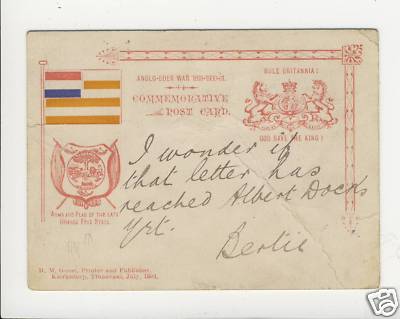 ANGLO-BOER WAR 1899-1900-01.
COMMEMORATIVE
POST CARD.
RULE BRITANNIA!
GOD SAVE THE KING!
ARMS AND FLAG OF THE LATE
ORANGE FREE STATE.
I wonder if
that letter has
reached Albert Docks
yet.
Bertie
Printer and Publisher,
Klerksdorp, Transvaal, July, 1901.